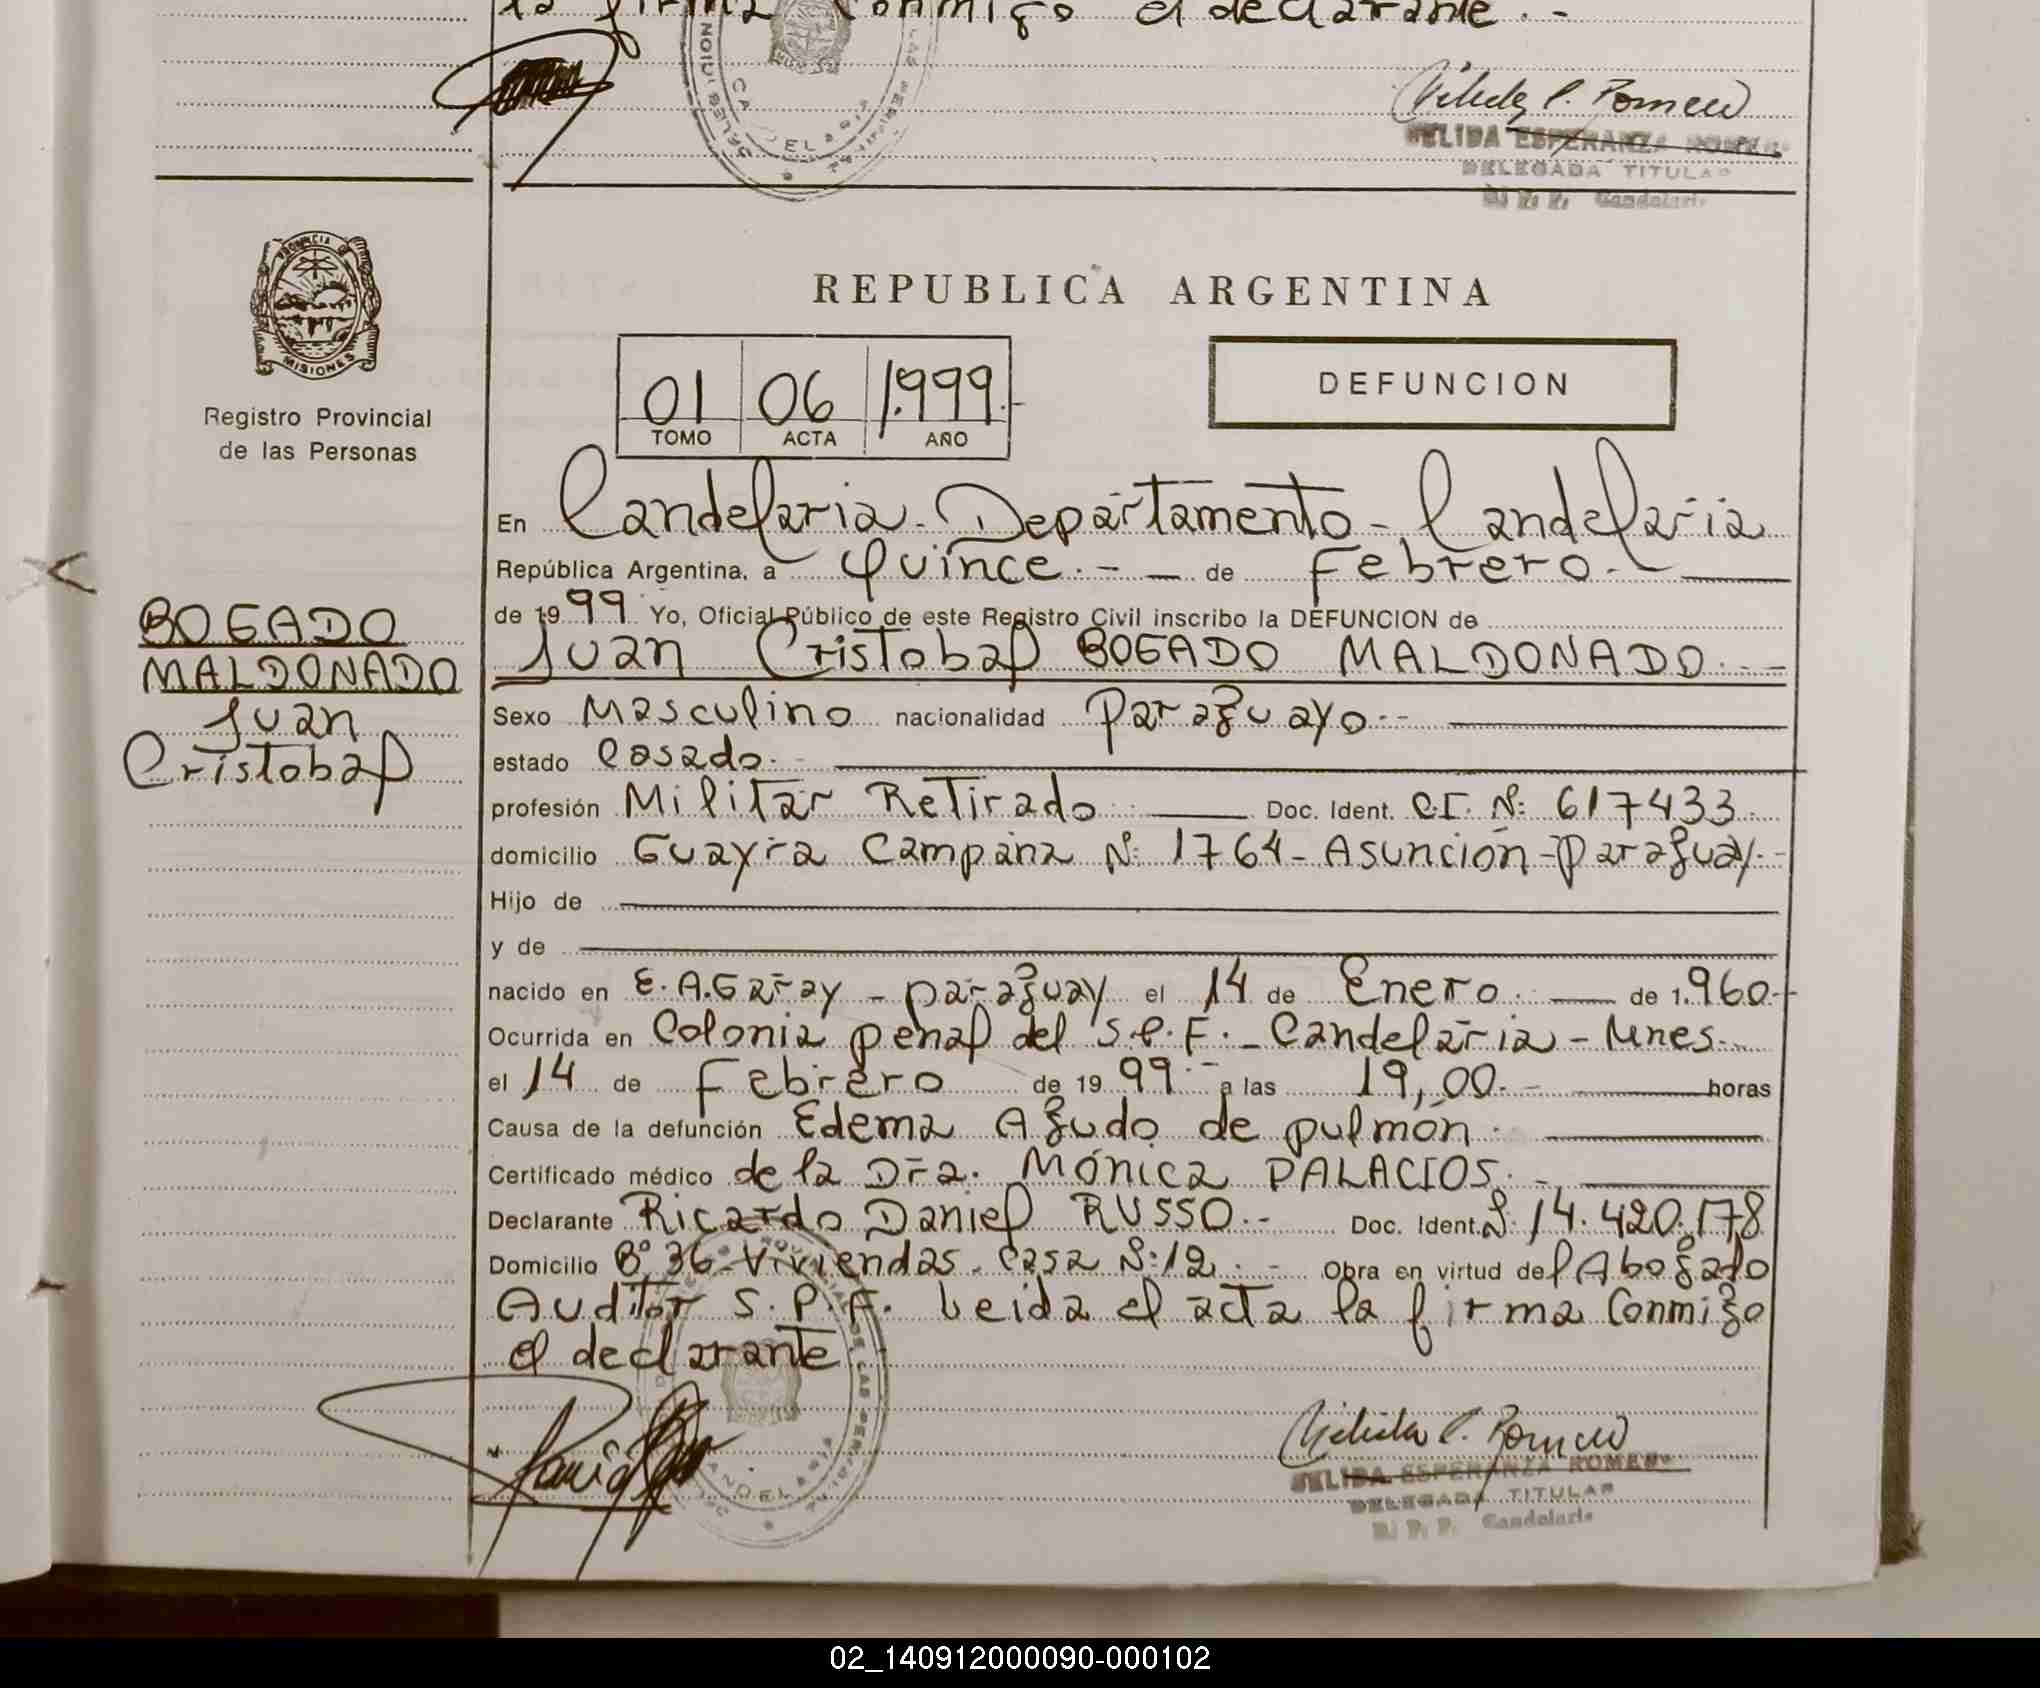 la firma conmigo el declarante.-
NELIDA ESPERANZA ROMERO
DELEGADA TITULAR
R. P. P. Candelaria
PROVINCIA DE
MISIONES
Registro Provincial
de las Personas
BOGADO
MALDONADO
Juan
Cristobal
REPUBLICA ARGENTINA
01 06 1.999.-
TOMO ACTA AÑO
DEFUNCION
En Candelaria - Departamento - Candelaria
República Argentina, a Quince.- - de Febrero.-
de 1999 Yo, Oficial Público de este Registro Civil inscribo la DEFUNCION de
Juan Cristobal BOGADO MALDONADO.-
Sexo Masculino nacionalidad Paraguayo.-
estado Casado.-
profesión Militar Retirado Doc. Ident. C.I. Nº: 617433.
domicilio Guayra Campana Nº: 1764 - Asunción - Paraguay.-
Hijo de
y de
nacido en E. A. Garay - Paraguay el 14 de Enero. de 1.960.-
Ocurrida en Colonia penal del S.P.F. - Candelaria - Mnes.
el 14 de Febrero de 1999.- a las 19,00.- horas
Causa de la defunción Edema Agudo de pulmón.
Certificado médico de la Dra. Mónica PALACIOS.-
Declarante Ricardo Daniel RUSSO.- Doc. Ident. Nº: 14.420.178
Domicilio Bº 36 Viviendas. Casa Nº: 12.- Obra en virtud del Abogado
Auditor S.P.F. Leida el acta la firma conmigo
el declarante
CANDELARIA
NELIDA ESPERANZA ROMERO
DELEGADA TITULAR
R. P. P. Candelaria
02_140912000090-000102